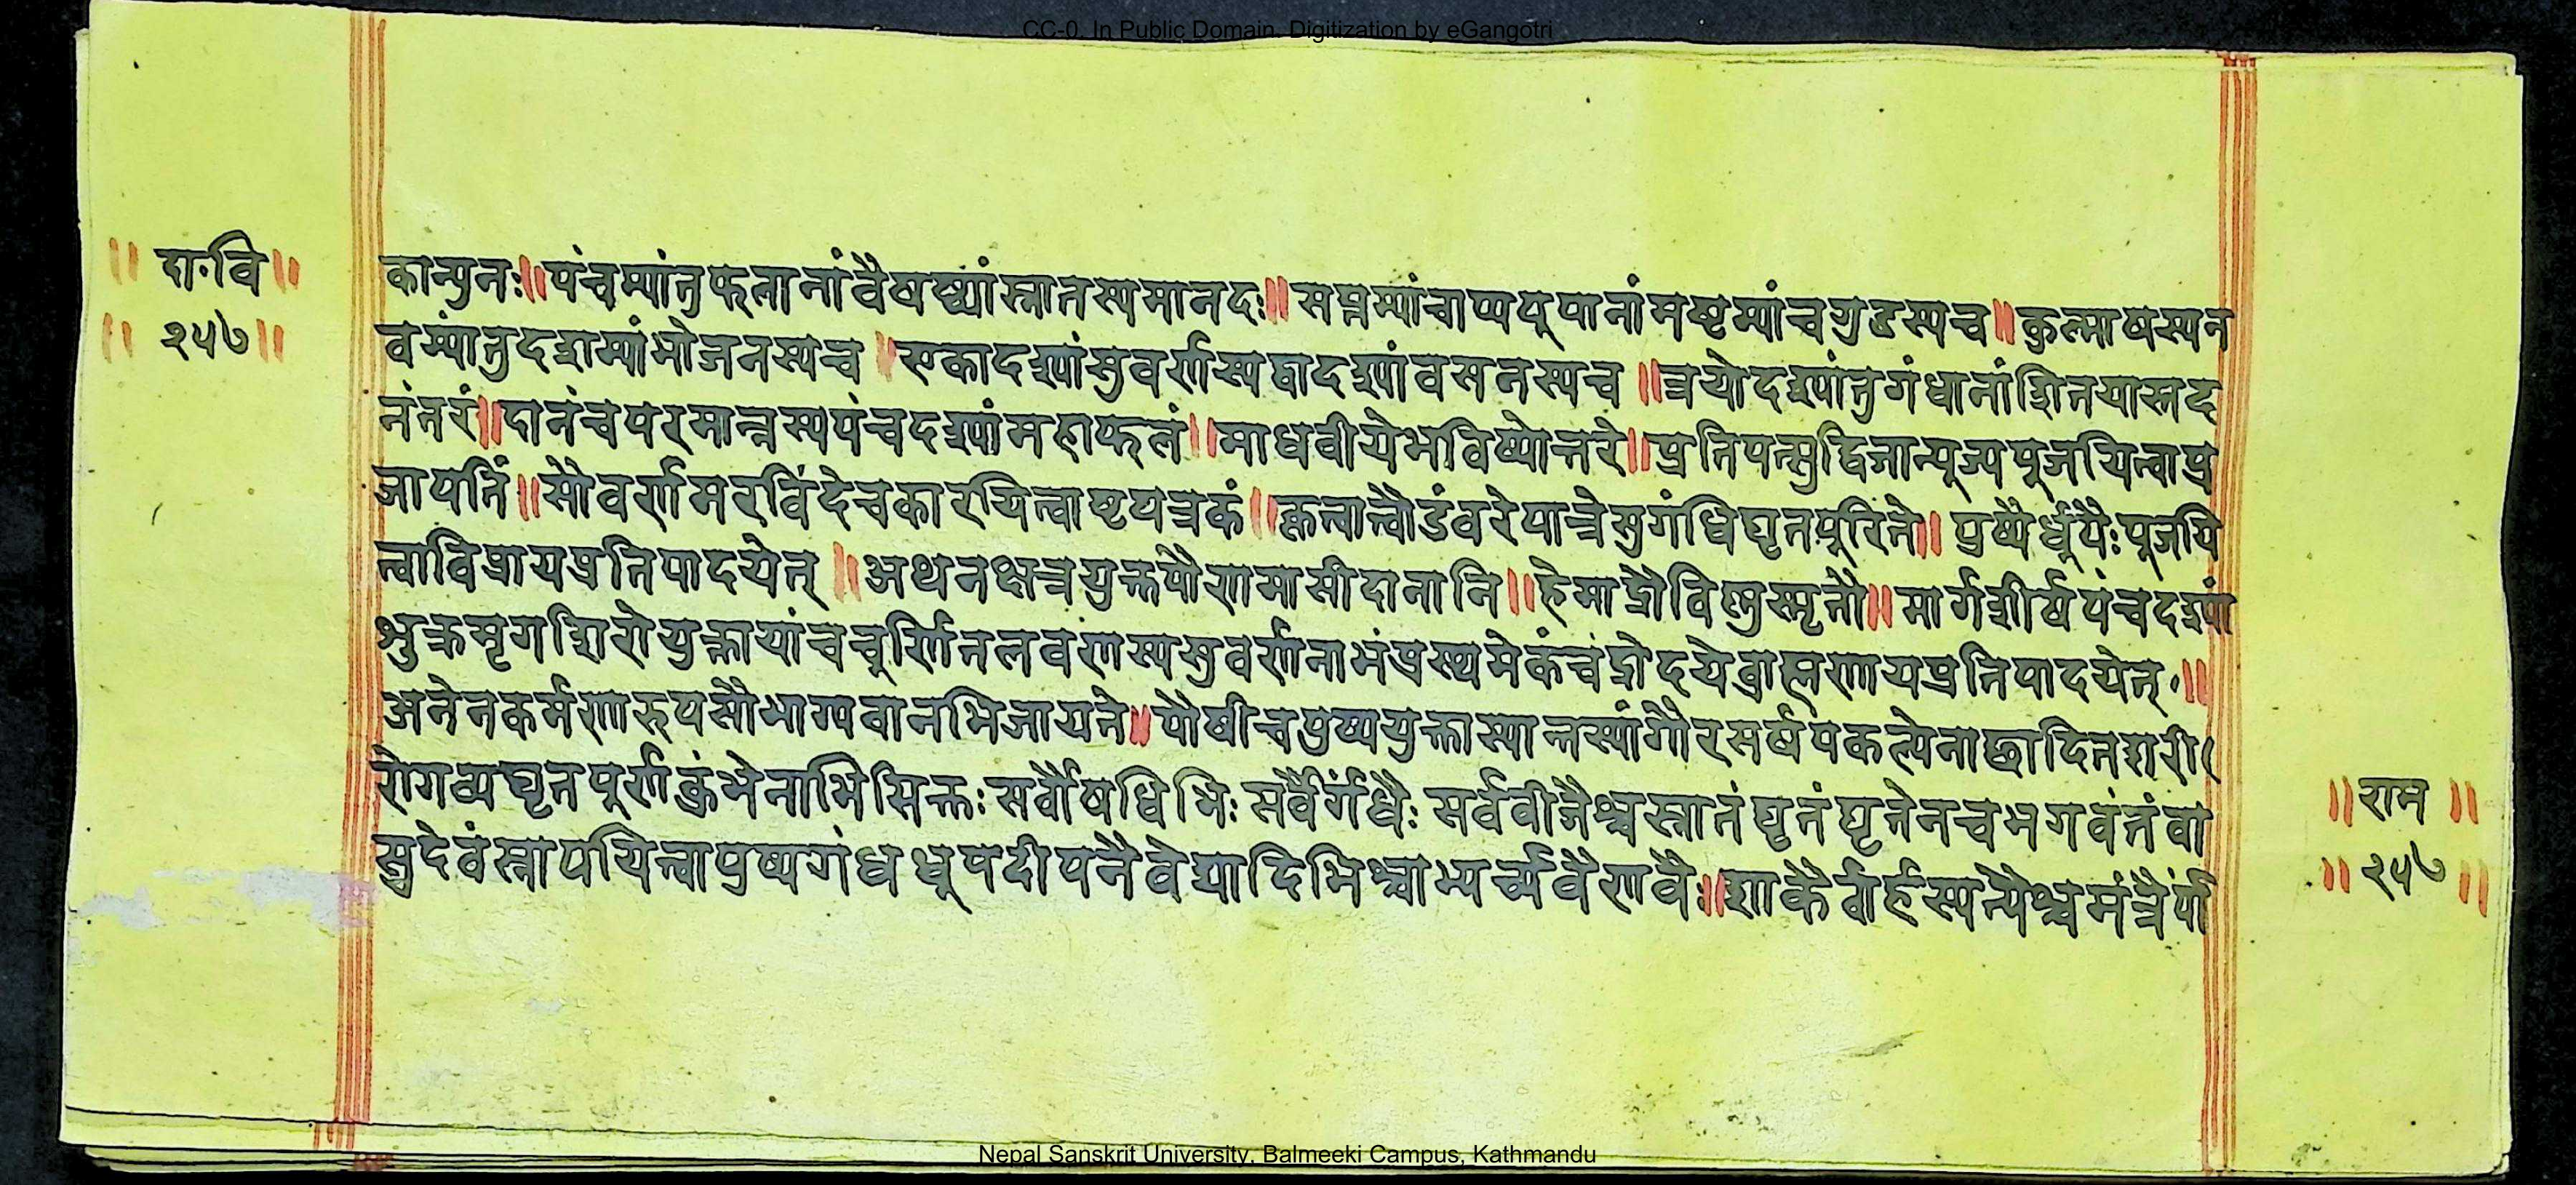 CC-0. In Public Domain. Digitization by eGangotri
॥ दा॰वि॥
॥ २५७॥
कान्पुनः॥पंचम्यांतुफलानांवैषष्ठ्यांस्नातस्यमानदः॥सप्तम्यांचाप्यपूपानांमष्टम्यांचगुडस्यच॥कुल्माषस्यन
वम्यांतुदशम्यांभोजनस्यच॥एकादश्यांसुवर्णस्यद्वादश्यांवसनस्यच॥त्रयोदश्यांतुगंधानांशितयास्तद
नंतरं॥दानंचपरमान्नस्यपंचदश्यांमहाफलं॥माधवीयेभविष्योत्तरे॥प्रतिपत्सुद्विजान्पूज्यपूजयित्वाप्र
जापतिं॥सौवर्णमरविंदेचकारयित्वाष्टपत्रकं॥कृत्वात्वौडंवरेपात्रेसुगंधिघृतपूरिते॥पुष्पैर्धूपैःपूजयि
त्वाविप्रायप्रतिपादयेत्॥अथनक्षत्रयुक्तपौर्णमासीदानानि॥हेमाद्रौविष्णुस्मृतौ॥मार्गशीर्षपंचदश्यां
भुक्रमृगशिरोयुक्तायांचचूर्णितलवणस्यसुवर्णनाभंप्रस्थमेकंचंद्रोदयेब्राह्मणायप्रतिपादयेत्॥
अनेनकर्मणारुपसौभाग्यवानभिजायते॥पौषीचपुष्ययुक्तास्यात्तस्यांगौरसर्षपकल्पेनाछादितशरी
रोगव्यघृतपूर्णकुंभेनाभिसिक्तःसर्वौषधिभिःसर्वैर्गंधैःसर्ववीजैश्चस्नातंघृतंघृतेनचभगवंतंवा
सुदेवंस्नापयित्वापुष्पगंधधूपदीपनैवेद्यादिभिश्चाभ्यर्च्यवैणवैः॥शाकैर्वार्हस्पत्यैश्चमंत्रैर्पा
॥राम॥
॥२५७॥
Nepal Sanskrit University, Balmeeki Campus, Kathmandu